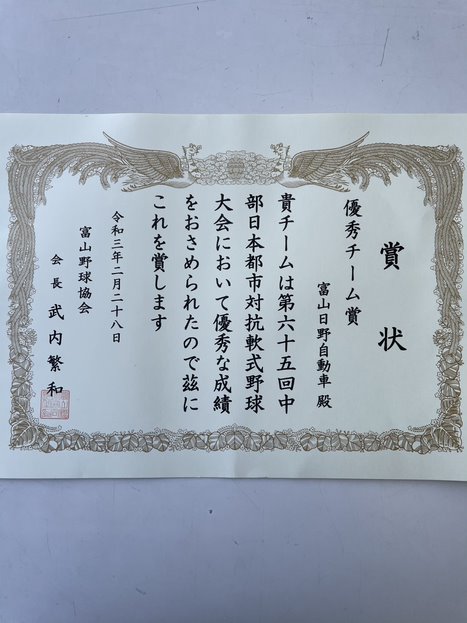 賞状
優秀チーム賞
富山日野自動車 殿
貴チームは第六十五回中
部日本都市対抗軟式野球
大会において優秀な成績
をおさめられたので茲に
これを賞します
令和三年二月二十八日
富山野球協会
会長 武内繁和